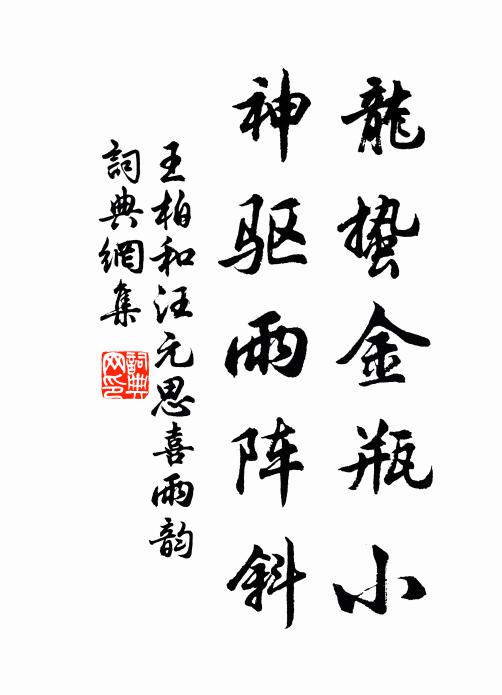 龍蟄金瓶小
神驱雨阵斜
王柏和汪元思喜雨韵
詞典網集
詞典网印